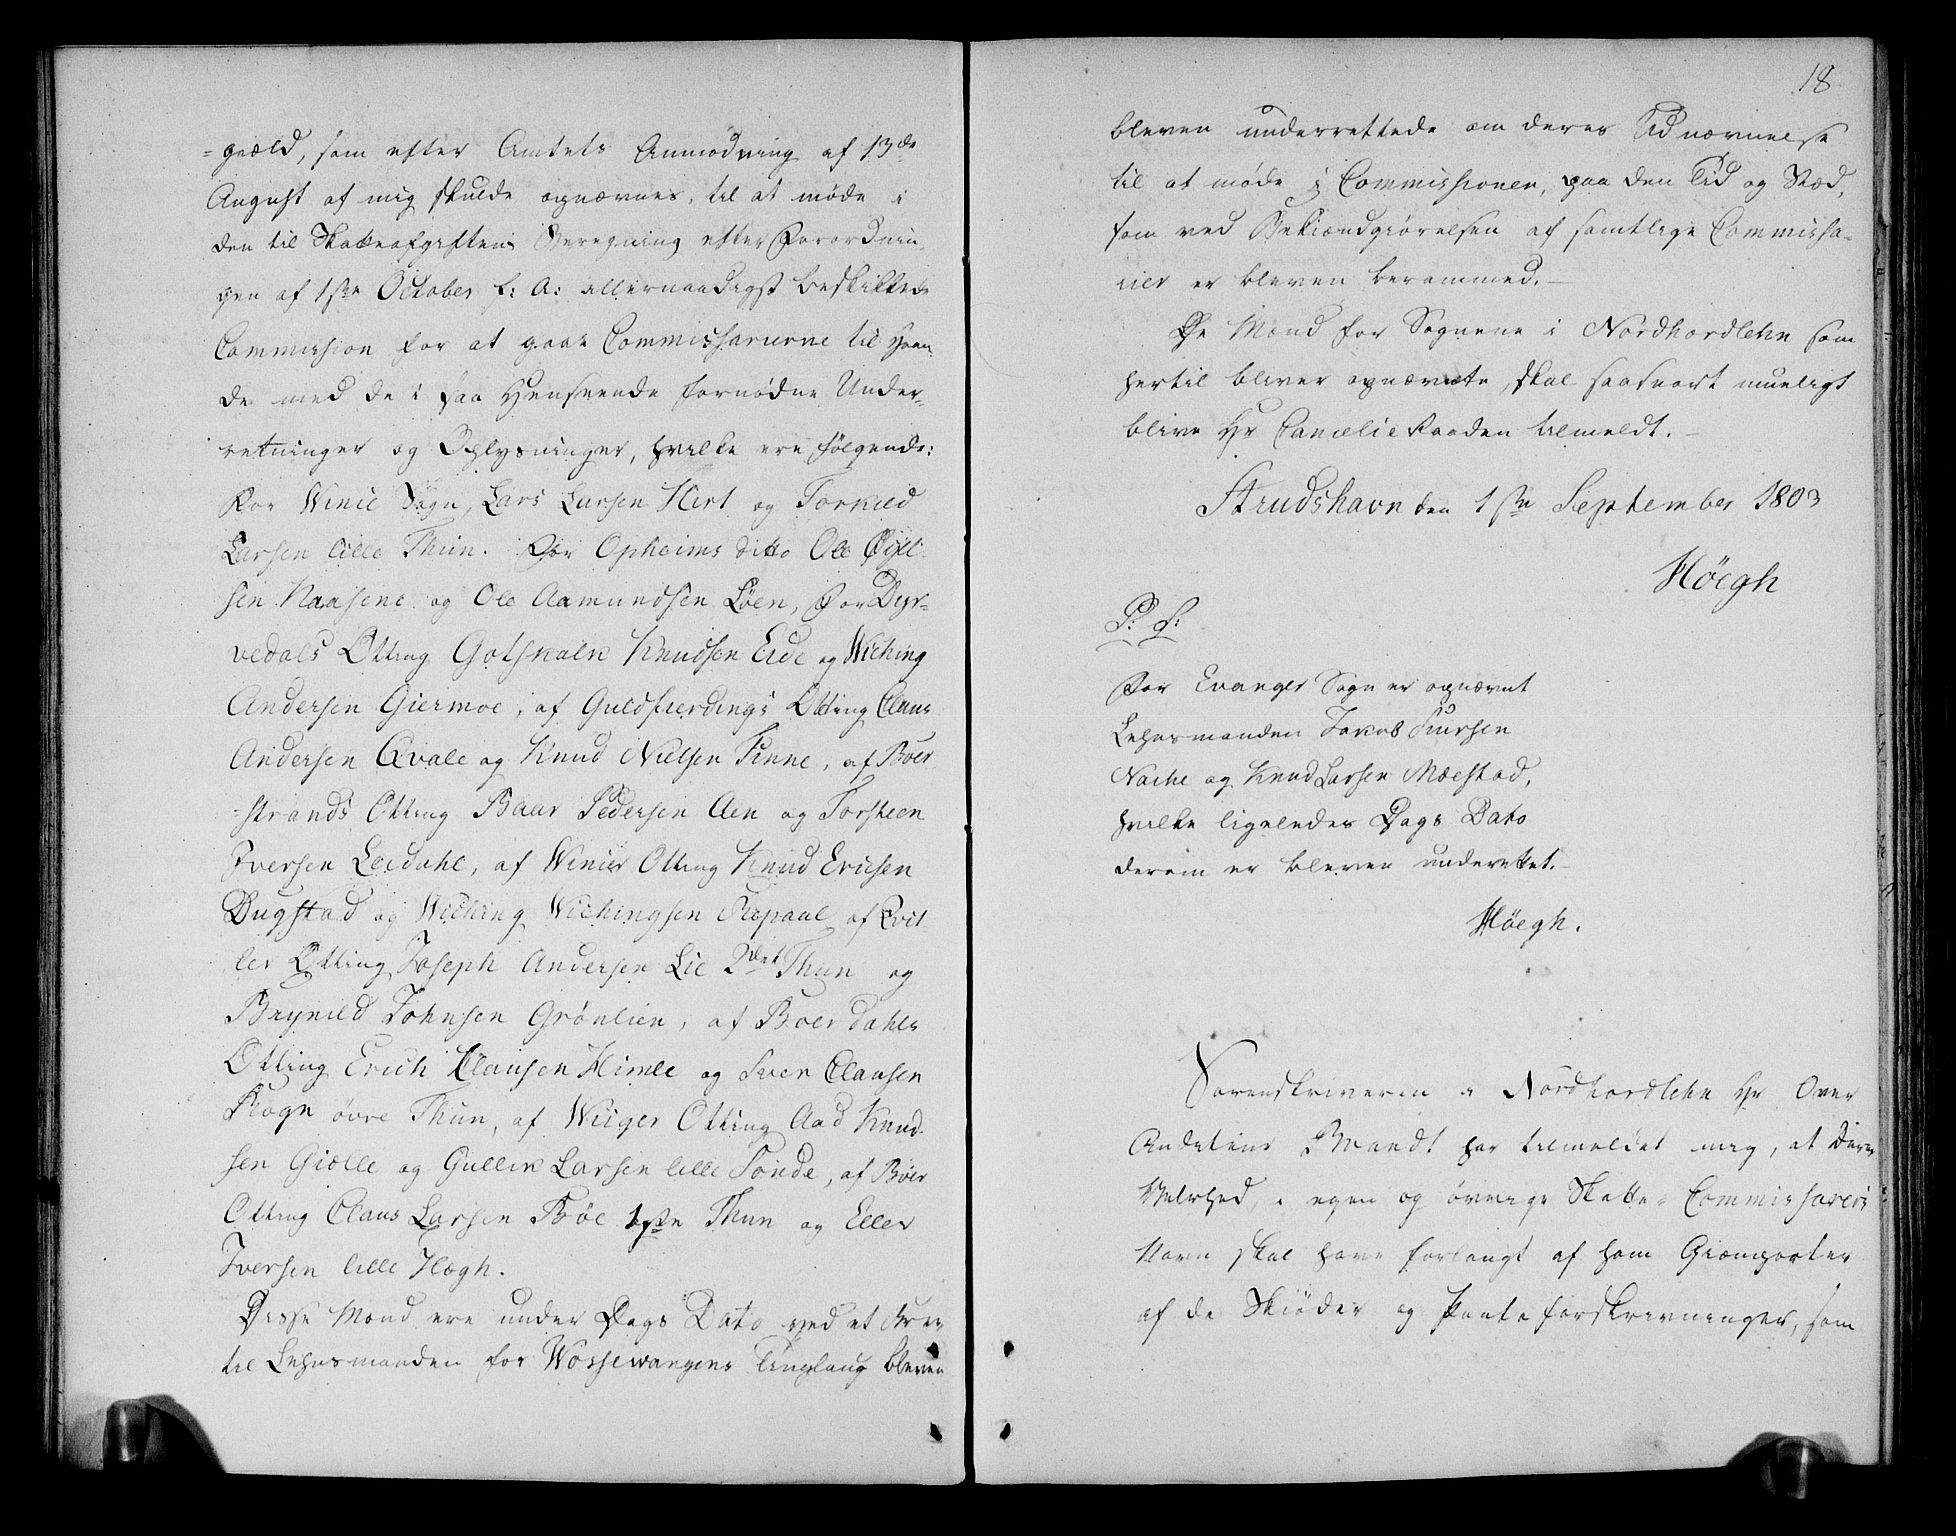 =gield, som efter Amtets Anmodning af 13de
August af mig skulde opnævnes, til at møde i
den til Skatteafgiftens Beregning efter Forordnin
gen af 1ste October f: A: allernaadigst beskikkede
Commission for at gaae Commissarierne til Haan
de med de i saa Henseende fornødne Under-
retninger og Oplysninger, hvilke ere følgende:
For Winie Sogn, Lars Larsen Hert og Torkild
Larsen lille Thun. For Opheims ditto Ole
sen Naasene og Ole Aamundsen Løen, For Dyr-
vedals Otting Gotskalk Knudsen Eide og Wiching
Andersen Giermoe, af Guldfierdings Otting Claus
Andersen Qvale og Knud Nielsen Finne, af Boer
=strands Otting Baar Pedersen Aen og Torsteen
Iversen Leidahl, af Winier Otting Knud Erichsen
Dugstad og Wiching Wichingsen af Qvit
ler Otting Joseph Andersen Lie 2det Thun og
Brynild Johnsen Grönlien, af Boer dahls
Otting Erich Clausen Himle og Sven Clausen
Rogn övre Thun, af Wiiger Otting Aad Knud-
sen Giølle og Gullik Larsen lille Tønde, af Bøer
Otting Claus Larsen Bøe 1ste Thun og Eller
Iversen lille Hægh.
Disse Mænd ere under Dags Dato ved et Brev
til Lehnsmanden for Wossewangens Tinglaug bleven
18
bleven underrettede om deres Udnævnelse
til at møde i Commissionen, paa den Tid og Stæd,
som ved Bekiændgiørelsen af samtlige Commissa-
rier er bleven berammed.—
De Mænd for Sognene i Nordhordlehn som
hertil bliver opnævnte, skal saasnart mueligt
blive Hr Cancelie Raaden tilmeldt.—
Strudshavn den 1ste September 1803
Höegh
P: S:
For Evanger Sogn er opnævnt
Lehnsmanden Jakob Siursen
Nache og Knud Larsen Mæstad,
hvilke ligeledes Dags Dato
derom er bleven underettet.—
Höegh.
Sorenskriveren i Nordhordlehn Hr Over
Auditeur Brandt har tilmeldet mig, at Deres
Velbhed, i egen og övrige Skatte- Commissairers
Navn skal have forlangt af ham Gienparter
af de Skiøder og Panteforskrivninger, som